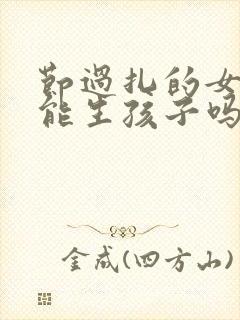 节过扎的女
能生孩子吗
金成(四方山)